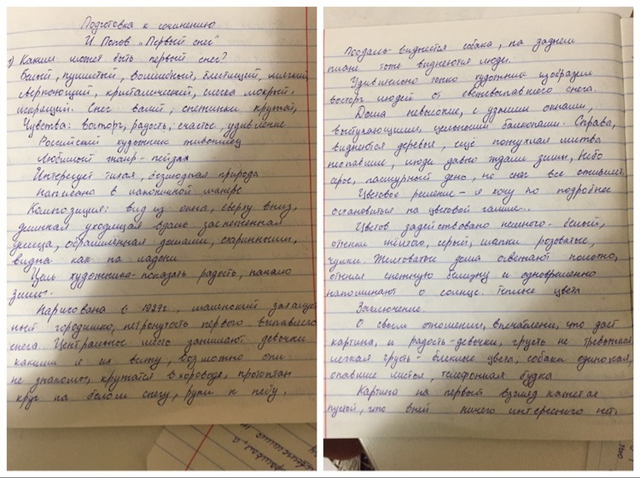 Подготовка к сочинению
И. Попов „Первый снег"
1) Каким может быть первый снег?
Белый, пушистый, волшебный, блестящий, мягкий
сверкающий, кристалический, слегка мокрый,
искрящий. Снег валит, снежинки кружат,
Чувства: восторг, радость, счастье, удивление
Российский художник живописец
Любимый жанр - пейзаж
Интересует тихая, безлюдная природа
Написано в лаконичной манере
Композиция: вид из окна, сверху вниз,
длинная уходящая вдаль заснеженная
улица, обрамленная домами, старинными,
видна как на ладони
Цель художника - показать радость, начало
зимы.
Нарисована в 1929г., маленький
городишко, нетронутость первого выпавшего
снега. Центральное место занимают девочки
какими я их вижу, возможно они
не знакомы, кружатся в хороводе, протоптан
круг на белом снегу, руки к небу,
Поодаль виднеется собака, на заднем
плане тоже виднеются люди.
Удивительно тонко художник изобразил
восторг людей от свежевыпавшего снега.
Дома невысокие, с узкими окнами,
выступающими, балконами. Справа,
виднеются деревья, еще пожухлая листва
неопавшая, люди давно ждали зимы, небо
серое, пасмурный день, но снег все оживил.
Цветовое решение - я хочу по подробнее
остановиться на цветовой гамме.
Цветов задействовано немного - белый,
оттенки желтого, серый, шапки розоватые,
чулки. Желтоватые дома освежают полотно,
оттеняя снежную белизну и одновременно
напоминают о солнце. Теплые цвета
Заключение.
О своем отношении, впечатлении, что дает
картина, и радость - девочки, грусть не тревожная
легкая грусть - блеклые цвета, собака одинокая,
опавшие листья, телефонная будка
Картина на первый взгляд кажется
пустой, что в ней ничего интересного нет,